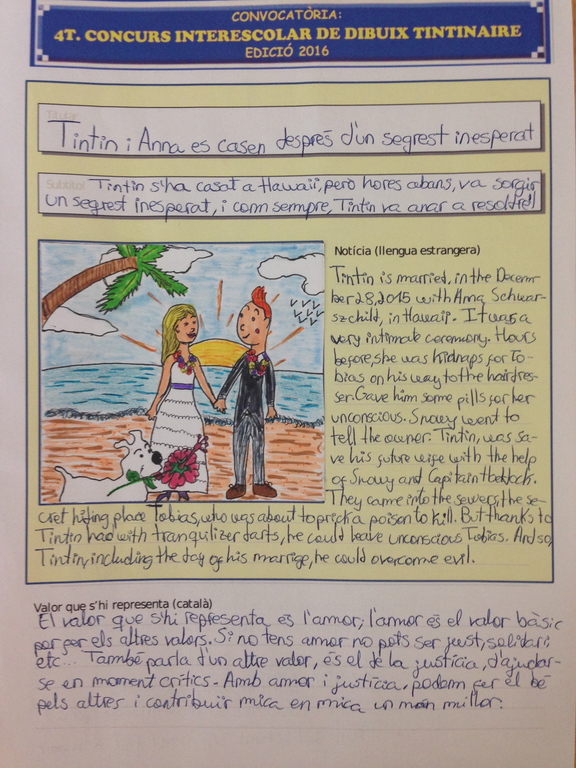 CONVOCATÒRIA:
4T. CONCURS INTERESCOLAR DE DIBUIX TINTINAIRE
EDICIÓ 2016
Titular
Tintin i Anna es casen després d'un segrest inesperat
Subtítol Tintin s'ha casat a Hawaii, però hores abans, va sorgir
un segrest inesperat, i com sempre, Tintin va anar a resoldre'l
Notícia (llengua estrangera)
Tintin is married, in the Decem-
ber 28, 2015 with Anna Schwar-
szchild, in Hawaii. It was a
very intimate ceremony. Hours
before, she was kidnaps for To-
bias on his way to the hairdres-
ser. Gave him some pills for her
unconscious. Snowy went to
tell the owner. Tintin, was sa-
ve his future wife with the help
of Snowy and Capitain Haddock.
They came into the sewers, the se-
cret hiting place Tobias, who was about to prick a poison to kill. But thanks to
Tintin had with tranquilizer darts, he could leave unconscious Tobias. And so,
Tintin, including the day of his marrige, he could overcome evil.
Valor que s'hi representa (català)
El valor que s'hi representa és l'amor, l'amor és el valor bàsic
per fer els altres valors. Si no tens amor no pots ser just, solidari,
etc... També parla d'un altre valor, és el de la justícia, d'ajudar-
se en moment crítics. Amb amor i justícia, podem fer el bé
pels altres i contribuir mica en mica un món millor.